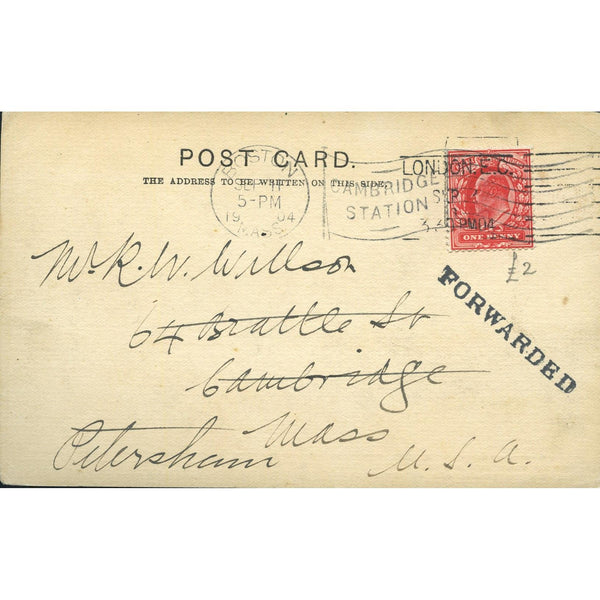 POST CARD.
THE ADDRESS TO BE WRITTEN ON THIS SIDE.
BOSTON
SEP
5-PM
1904
MASS.
CAMBRIDGE
STATION
LONDON E.C.
SEP
PM 04
ONE PENNY
£2
FORWARDED
Mr R. W. Willson
64 Brattle St
Cambridge
Mass
Petersham
U.S.A.